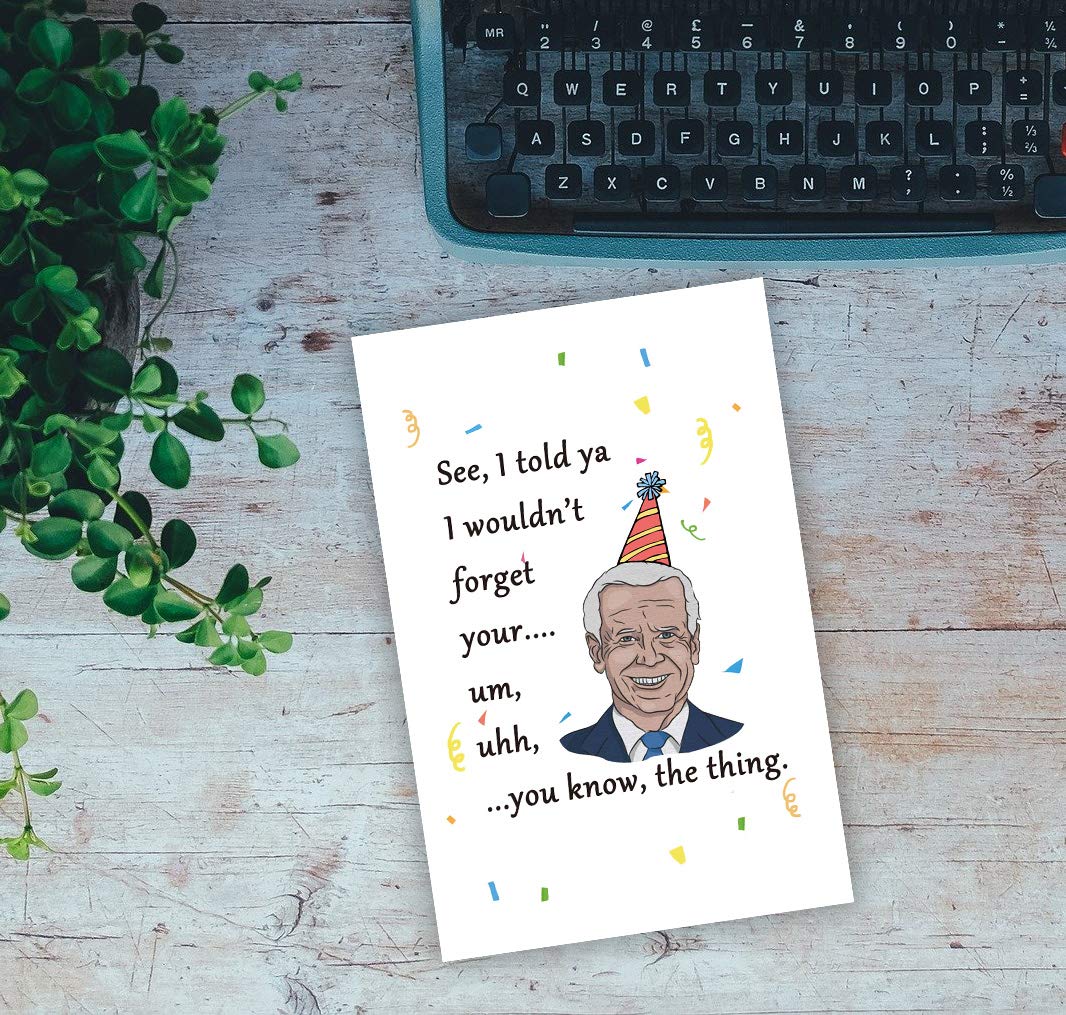 MR " 2 / 3 @ 4 £ 5 — 6 & 7 ' 8 ( 9 ) 0 * - ¼ ¾
Q W E R T Y U I O P + =
A S D F G H J K L : ; ⅓ ⅔
Z X C V B N M ? , : . % ½
See, I told ya
I wouldn't
forget
your....
um,
uhh,
...you know, the thing.